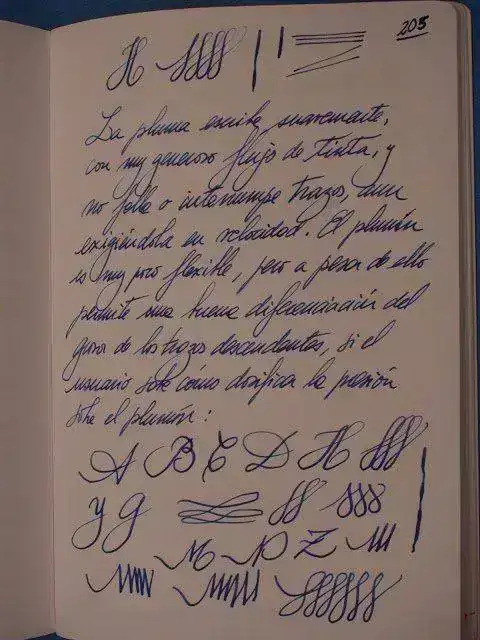 205
H
La pluma escribe suavemente,
con muy generoso flujo de tinta, y
no falla o interrumpe trazos, aun
exigiéndola en velocidad. El plumín
es muy poco flexible, pero a pesar de ello
permite una buena diferenciación del
grosor de los trazos descendentes, si el
usuario sabe cómo dosifica la presión
sobre el plumín:
A B C D H
y g
M N Z